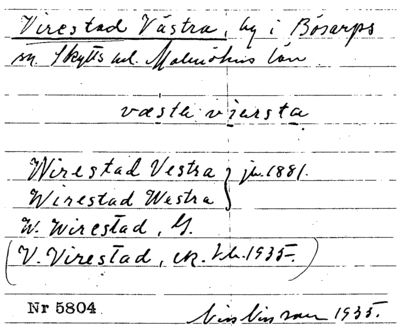 Virestad Västra, by i Bösarps
sn Skytts hd. Malmöhus län.
västra virsta
Wirestad Vestra } jb. 1881.
Wirestad Westra
W. Wirestad, G.
(V. Virestad, ek. bl. 1935.)
Nr 5804
1935.